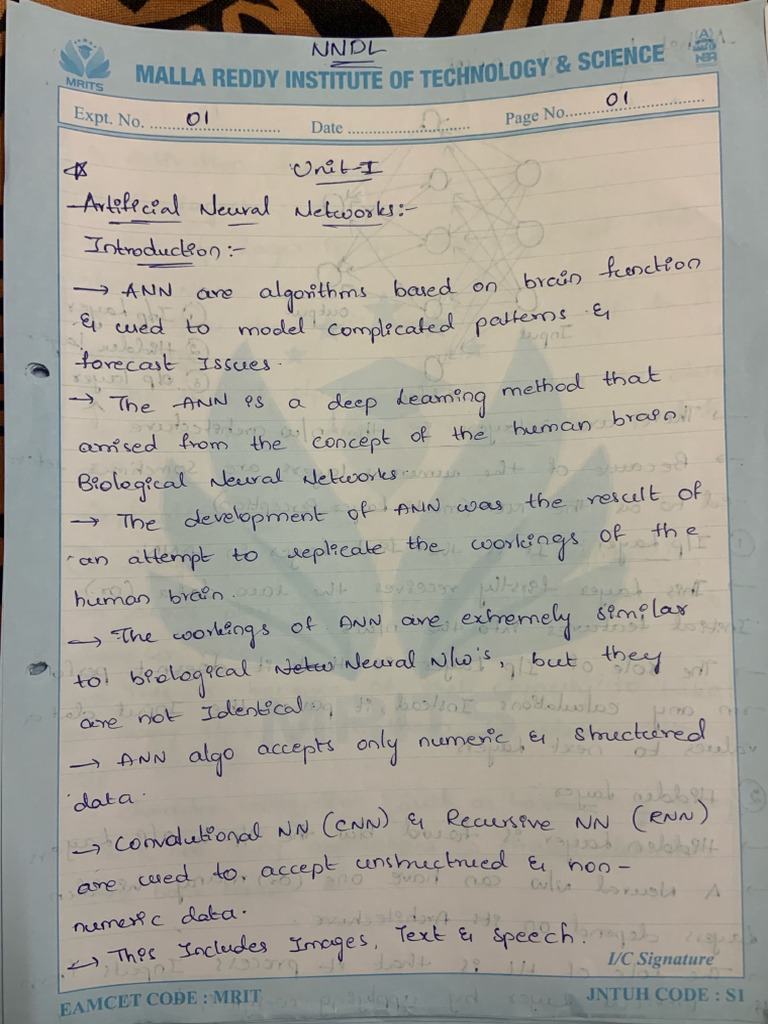 NNDL
MRITS
MALLA REDDY INSTITUTE OF TECHNOLOGY & SCIENCE
Expt. No. 01 Date Page No. 01
Unit-I
Artificial Neural Networks:-
Introduction:-
→ ANN are algorithms based on brain function
& used to model complicated patterns &
forecast Issues.
→ The ANN is a deep Learning method that
arised from the concept of the human brain.
Biological Neural Networks.
→ The development of ANN was the result of
an attempt to replicate the workings of the
human brain.
→ The workings of ANN are extremely similar
to biological Netw Neural N/w's, but they
are not Identical.
→ ANN algo accepts only numeric & structured
data.
→ Convolutional NN (CNN) & Recursive NN (RNN)
are used to accept unstructrued & non-
numeric data.
→ This Includes Images, Text & speech.
I/C Signature
EAMCET CODE : MRIT JNTUH CODE : S1